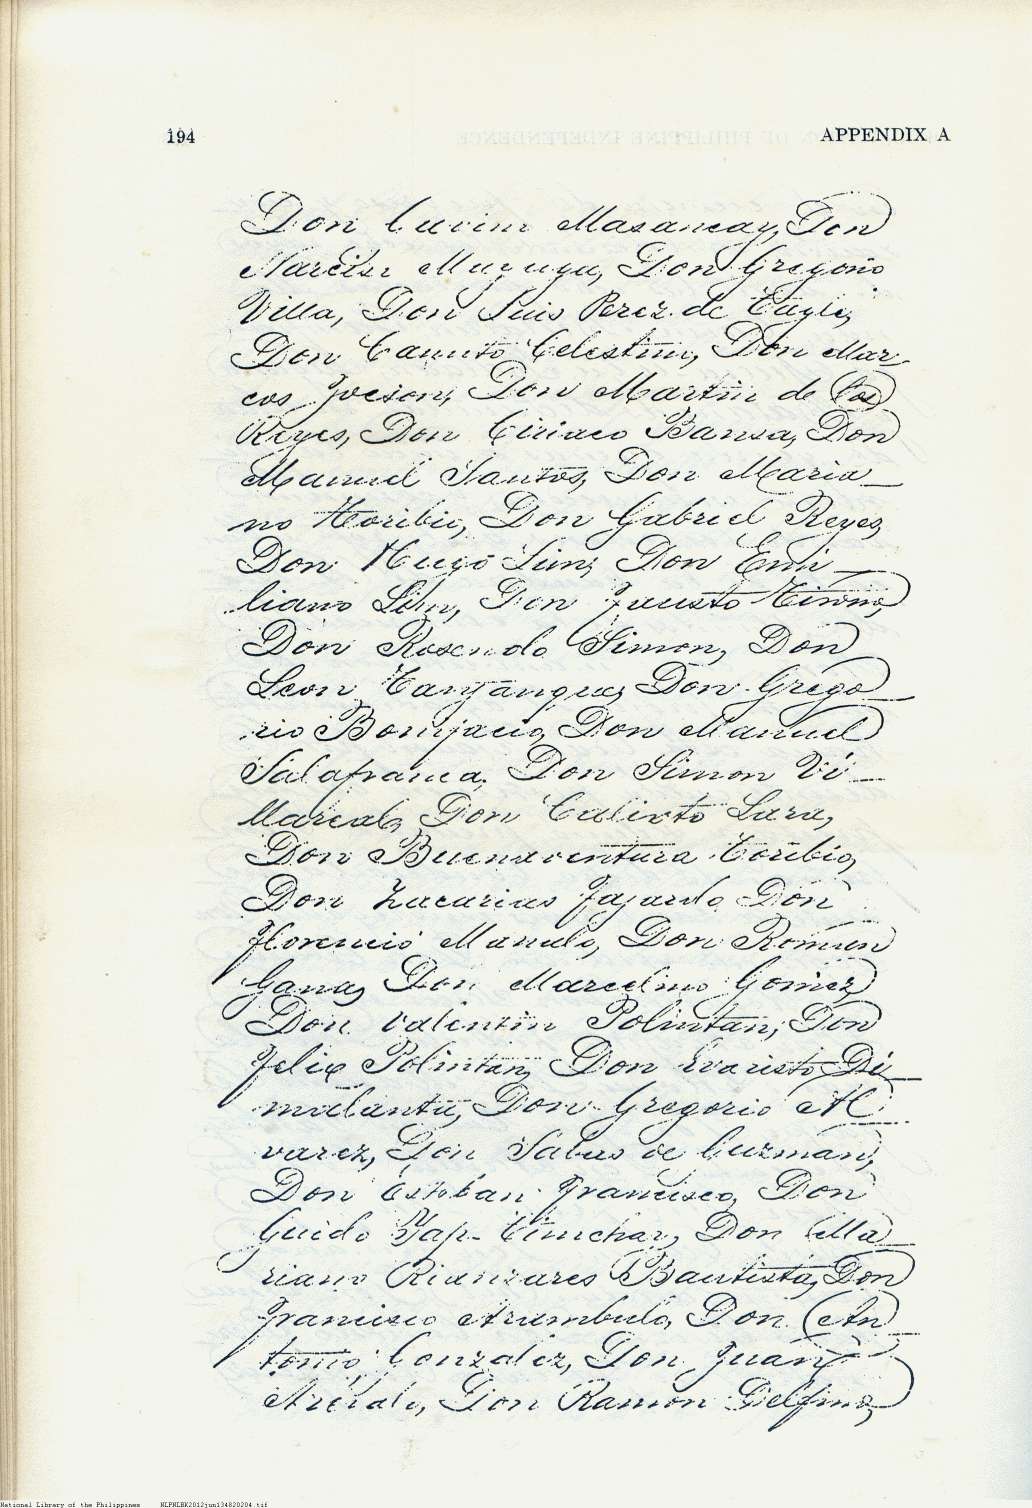 194
APPENDIX A
Don Masancay, Don
Narciso Mayuga, Don Gregorio
Villa, Don Luis Perez de Tagle,
Don Canuto Celestino, Don Mar-
cos Jocson, Don Martin de los
Reyes, Don Ciriaco Bausa, Don
Manuel Santos, Don Maria_
no Toribio, Don Gabriel Reyes,
Don Hugo Lim, Don Emi_
liano Lim, Don Fausto Tirona,
Don Rosendo Simon, Don
Leon Tanjanque, Don Grego_
rio Bonifacio, Don Manuel
Salafranca, Don Simon Vi_
llareal, Don Calixto Lara,
Don Buenaventura Toribio,
Don Zacarias Fajardo, Don
Florencio Manalo, Don Roman
Gana, Don Marcelino Gomez,
Don Valentin Polintan, Don
Felix Polintan, Don Evaristo Di_
malanta, Don Gregorio Al_
varez, Don Sabas de Guzman,
Don Esteban Francisco, Don
Guido Yap-Tinchay, Don Ma_
riano Rianzares Bautista, Don
Francisco Arambulo, Don An_
tonio Gonzalez, Don Juan
Arevalo, Don Ramon Delfino,
National Library of the Philippines NLPNLBK2012jun134820204.tif